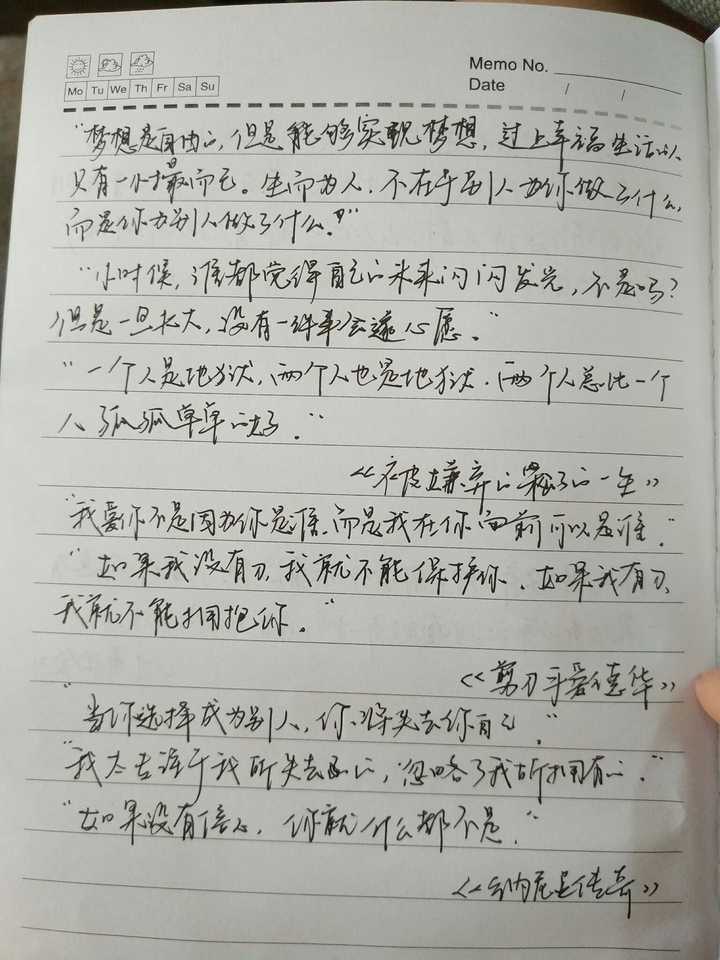 Memo No.
Date / /
Mo Tu We Th Fr Sa Su
"梦想是自由的，但是能够实现梦想，过上幸福生活的人
只有一小撮而已。生而为人，不在于别人为你做了什么，
而是你为别人做了什么。"
"小时候，谁都觉得自己的未来闪闪发光，不是吗？
但是一旦长大，没有一件事会遂心愿。"
"一个人是地狱，两个人也是地狱，两个人总比一个
人孤孤单单的好。"
《被嫌弃的松子的一生》
"我爱你不是因为你是谁，而是我在你面前可以是谁。"
"如果我没有刀，我就不能保护你，如果我有刀，
我就不能拥抱你。"
《剪刀手爱德华》
"当你选择成为别人，你将失去你自己。"
"我太专注于我所失去的，忽略了我所拥有的。"
"如果没有信心，你就什么都不是。"
《纳尼亚传奇》